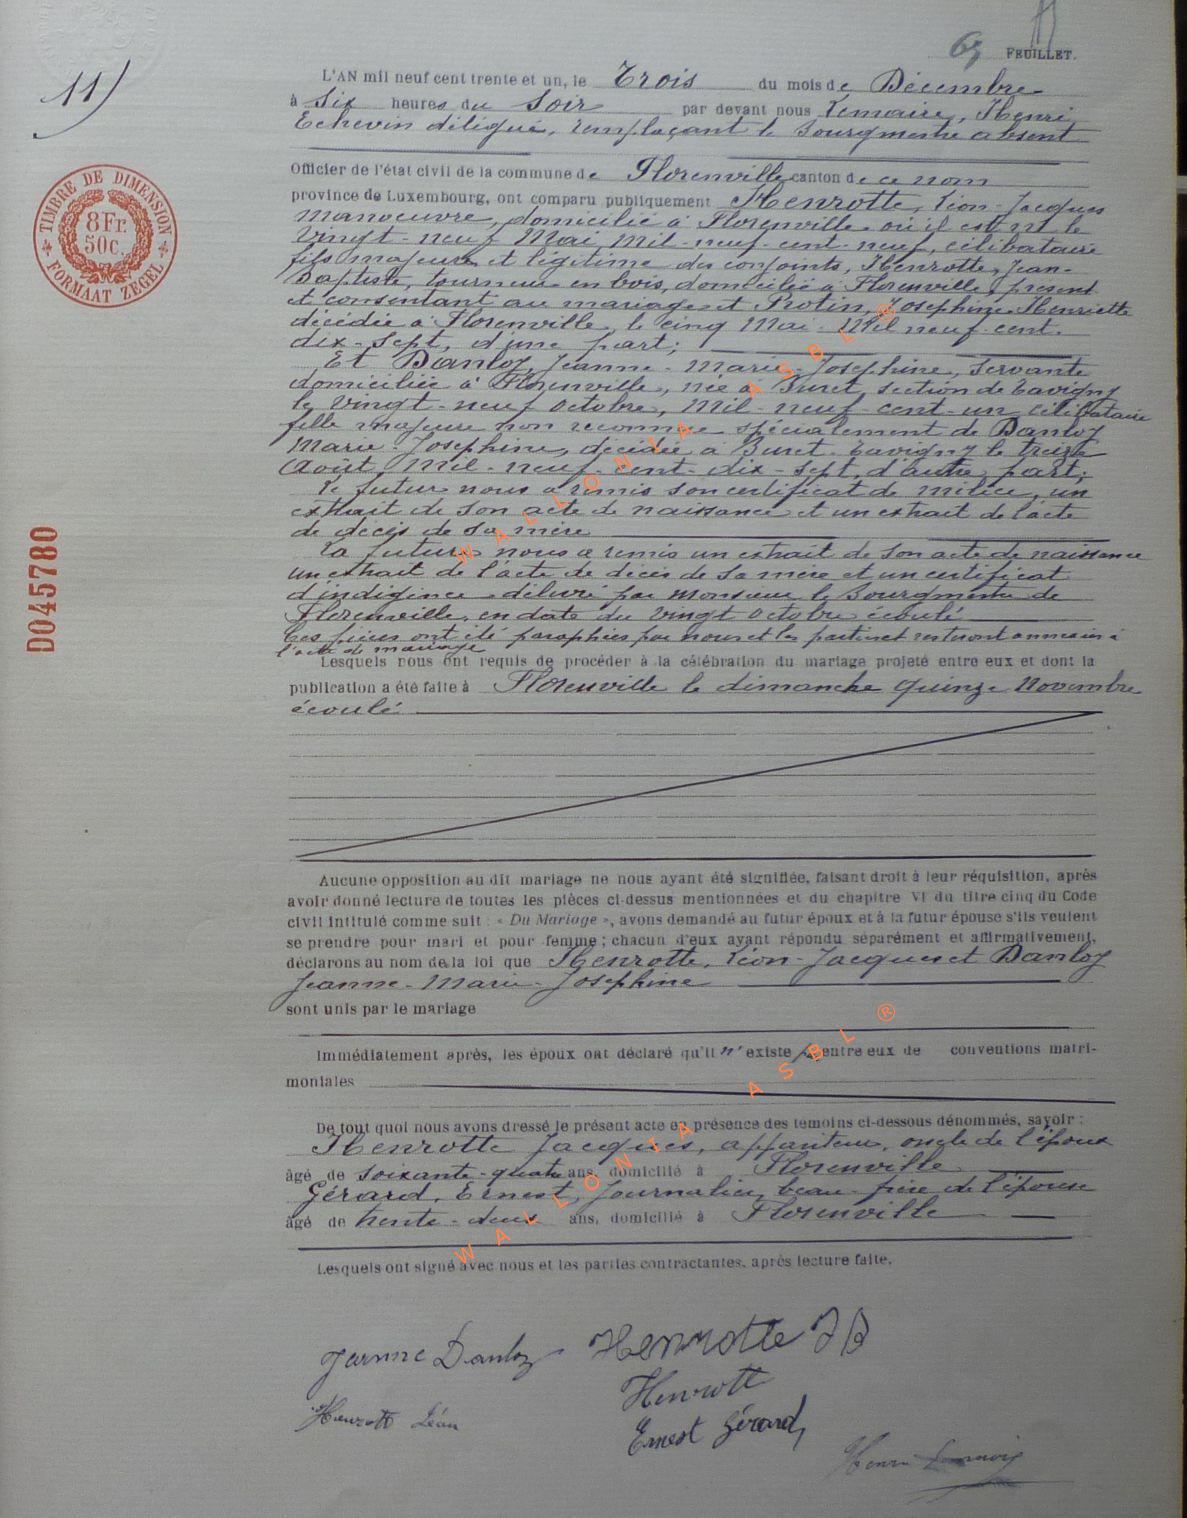 11)
65 FEUILLET.
TIMBRE DE DIMENSION
8Fr.
50c.
FORMAAT ZEGEL
D045780
L'AN mil neuf cent trente et un, le Trois du mois de Décembre
à Six heures du Soir par devant nous Lemaire, Henri
Echevin délégué, remplaçant le Bourgmestre absent
Officier de l'état civil de la commune de Florenville canton de ce nom
province de Luxembourg, ont comparu publiquement Henrotte, Léon-Jacques
Manoeuvre, domicilié à Florenville où il est né le
Vingt-neuf Mai Mil-neuf-cent-neuf, célibataire
fils majeur et légitime des conjoints, Henrotte, Jean-
Baptiste, tourneur en bois, domicilié à Florenville, présent
et consentant au mariage et Protin, Josephine-Henriette
décédée à Florenville, le cinq Mai Mil neuf-cent-
dix-sept, d'une part;
Et Danloy, Jeanne-Marie-Josephine, Servante
domiciliée à Florenville, née à Buret, section de Tavigny
le Vingt-neuf Octobre, Mil-neuf-cent-un célibataire
fille majeure non reconnue spécialement de Danloy
Marie-Josephine, décédée à Buret-Tavigny le treize
Août Mil-neuf-cent-dix-sept, d'autre part;
Le futur nous a remis son certificat de milice, un
extrait de son acte de naissance et un extrait de l'acte
de décès de sa mère
La future nous a remis un extrait de son acte de naissance
un extrait de l'acte de décès de sa mère et un certificat
d'indigence délivré par Monsieur le Bourgmestre de
Florenville, en date du Vingt Octobre écoulé
Ces pièces ont été paraphées par nous et les parties et resteront annexées à
l'acte de mariage
Lesquels nous ont requis de procéder à la célébration du mariage projeté entre eux et dont la
publication a été faite à Florenville le dimanche quinze Novembre
écoulé
Aucune opposition au dit mariage ne nous ayant été signifiée, faisant droit à leur réquisition, après
avoir donné lecture de toutes les pièces ci-dessus mentionnées et du chapitre VI du titre cinq du Code
civil intitulé comme suit : « Du Mariage », avons demandé au futur époux et à la future épouse s'ils veulent
se prendre pour mari et pour femme ; chacun d'eux ayant répondu séparément et affirmativement,
déclarons au nom de la loi que Henrotte, Léon-Jacques et Danloy
Jeanne-Marie-Josephine
sont unis par le mariage
Immédiatement après, les époux ont déclaré qu'il n'existe pas entre eux de conventions matri-
moniales
De tout quoi nous avons dressé le présent acte en présence des témoins ci-dessous dénommés, savoir :
Henrotte Jacques, appariteur, oncle de l'époux
âgé de soixante-quatre ans, domicilié à Florenville
Gérard, Ernest, Journalier, beau-frère de l'épouse
âgé de trente-deux ans, domicilié à Florenville
Lesquels ont signé avec nous et les parties contractantes, après lecture faite.
Jeanne Danloy Henrotte JB
Henrotte
Henrotte Léon
Ernest Gérard
Henri
WALLONIA ASBL ®
WALLONIA ASBL ®